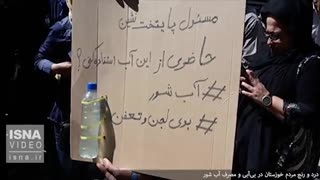 مسئول پایتخت نشین
حاضری از این آب استفاده کنی؟
#آب شور
#بوی لجن و تعفن
ISNA
VIDEO
isna.ir
درد و رنج مردم خوزستان در بی‌آبی و مصرف آب شور